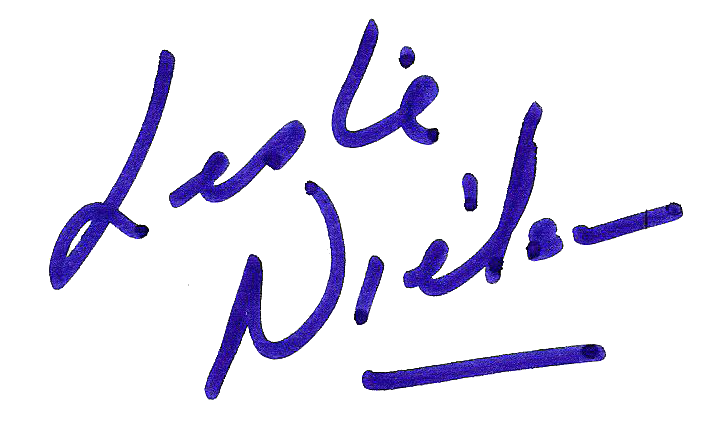 Leslie
Nielsen